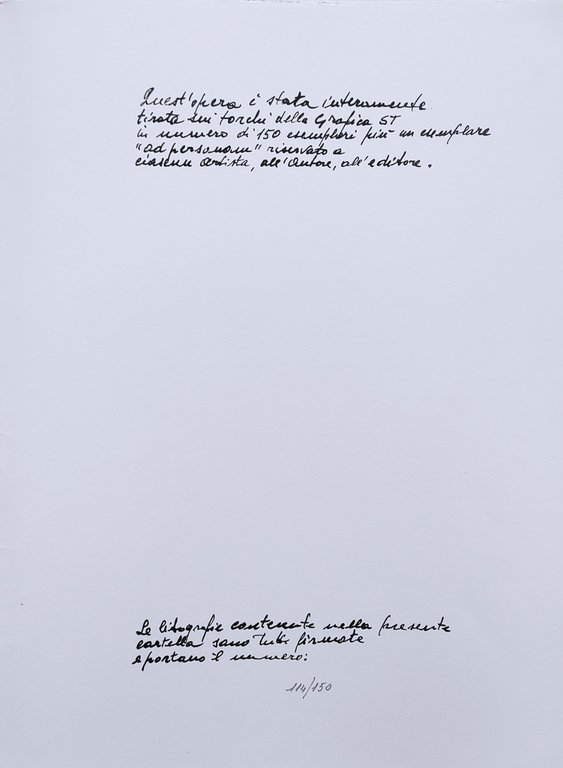 Quest'opera è stata interamente
tirata sui torchi della Grafica ST
in numero di 150 esemplari più un esemplare
"ad personam" riservato a
ciascun artista, all'autore, all'editore.
Le litografie contenute nella presente
cartella sono tutte firmate
e portano il numero:
114/150